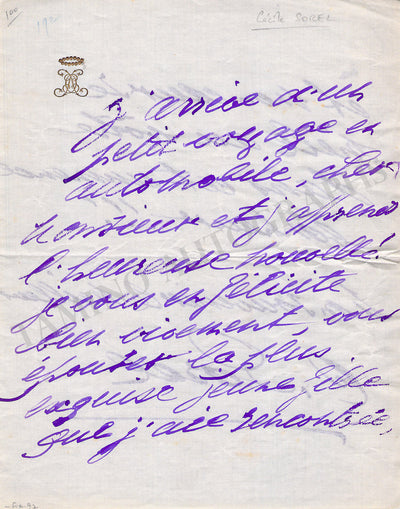 100
19
Cécile SOREL
j'arrive d'un
petit voyage en
automobile, cher
monsieur et j'apprends
l'heureuse nouvelle!
je vous en félicite
bien vivement, vous
épousez la plus
exquise jeune fille
que j'aie rencontrée,
TAMINO AUTOGRAPHS